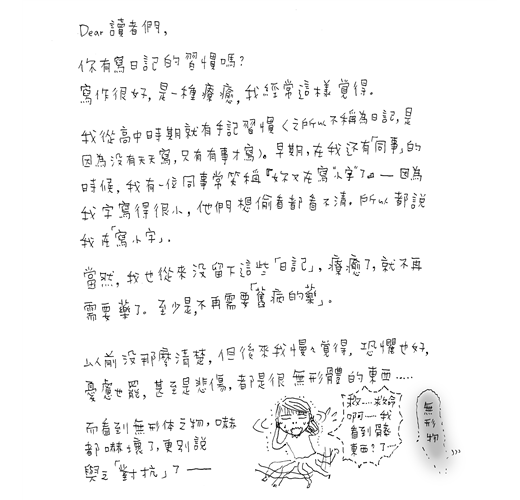 Dear 讀者們，
你有寫日記的習慣嗎？
寫作很好，是一種療癒，我經常這樣覺得。
我從高中時期就有手記習慣（之所以不稱為日記，是
因為沒有天天寫，只有有事才寫）。早期，在我還有「同事」的
時候，我有一位同事常笑稱『妳又在寫"小字"了』—— 因為
我字寫得很小，他們想偷看都看不清。所以都說
我在「寫小字」.
當然，我也從來沒留下這些「日記」，療癒了，就不再
需要藥了。至少是，不再需要「舊病的藥」。
以前沒那麼清楚，但後來我慢慢覺得，恐懼也好，
憂慮也罷，甚至是悲傷，都是很無形體的東西……
而看到無形体之物，嚇
都嚇壞了，更別說
與之「對抗」了 ——
救……救命
啊……我
看到髒
東西？
了……
無形物